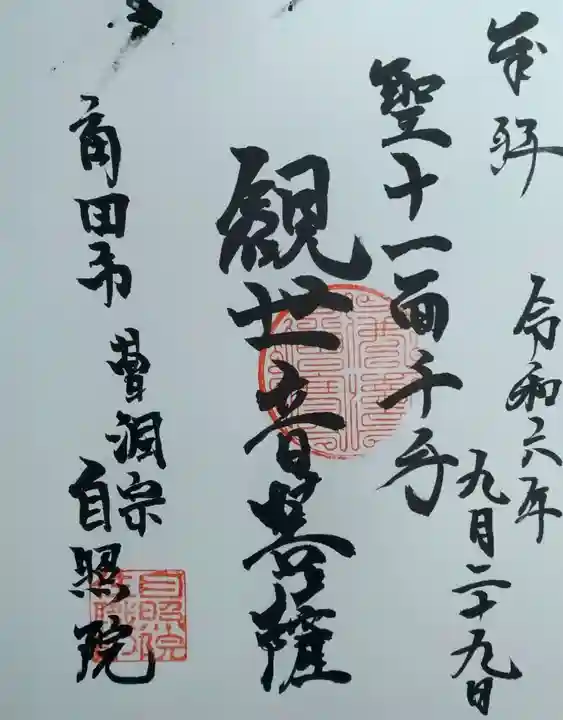 奉拝
令和六年
九月二十九日
聖十一面千手
観世音菩薩
角田市
曹洞宗
自照院
自照院